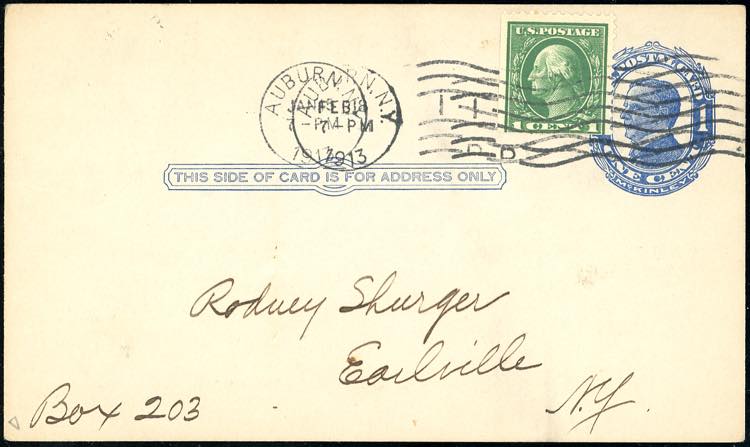 U.S. POSTAGE
1 CENT 1
POSTAL CARD
1
ONE CENT
McKINLEY
AUBURN, N.Y.
FEB 18
7 - PM
1913
THIS SIDE OF CARD IS FOR ADDRESS ONLY
Rodney Shurger
Earlville
N.Y.
Box 203